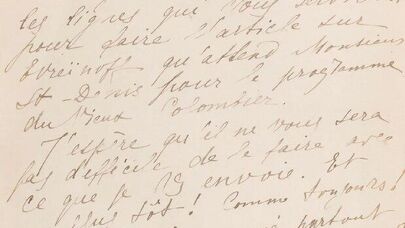 les lignes que vous
pour faire l'article sur
Evreïnoff qu'attend Monsieur
St-Denis pour le programme
du Vieux Colombier.
J'espère qu'il ne vous sera
pas difficile de le faire avec
ce que je envoie. Et
plus tôt! Comme toujours!
partout